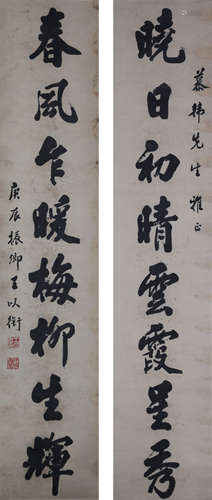 慕韩先生雅正
曉日初晴雲霞呈秀
春風乍暖梅柳生輝
庚辰振卿王以衡